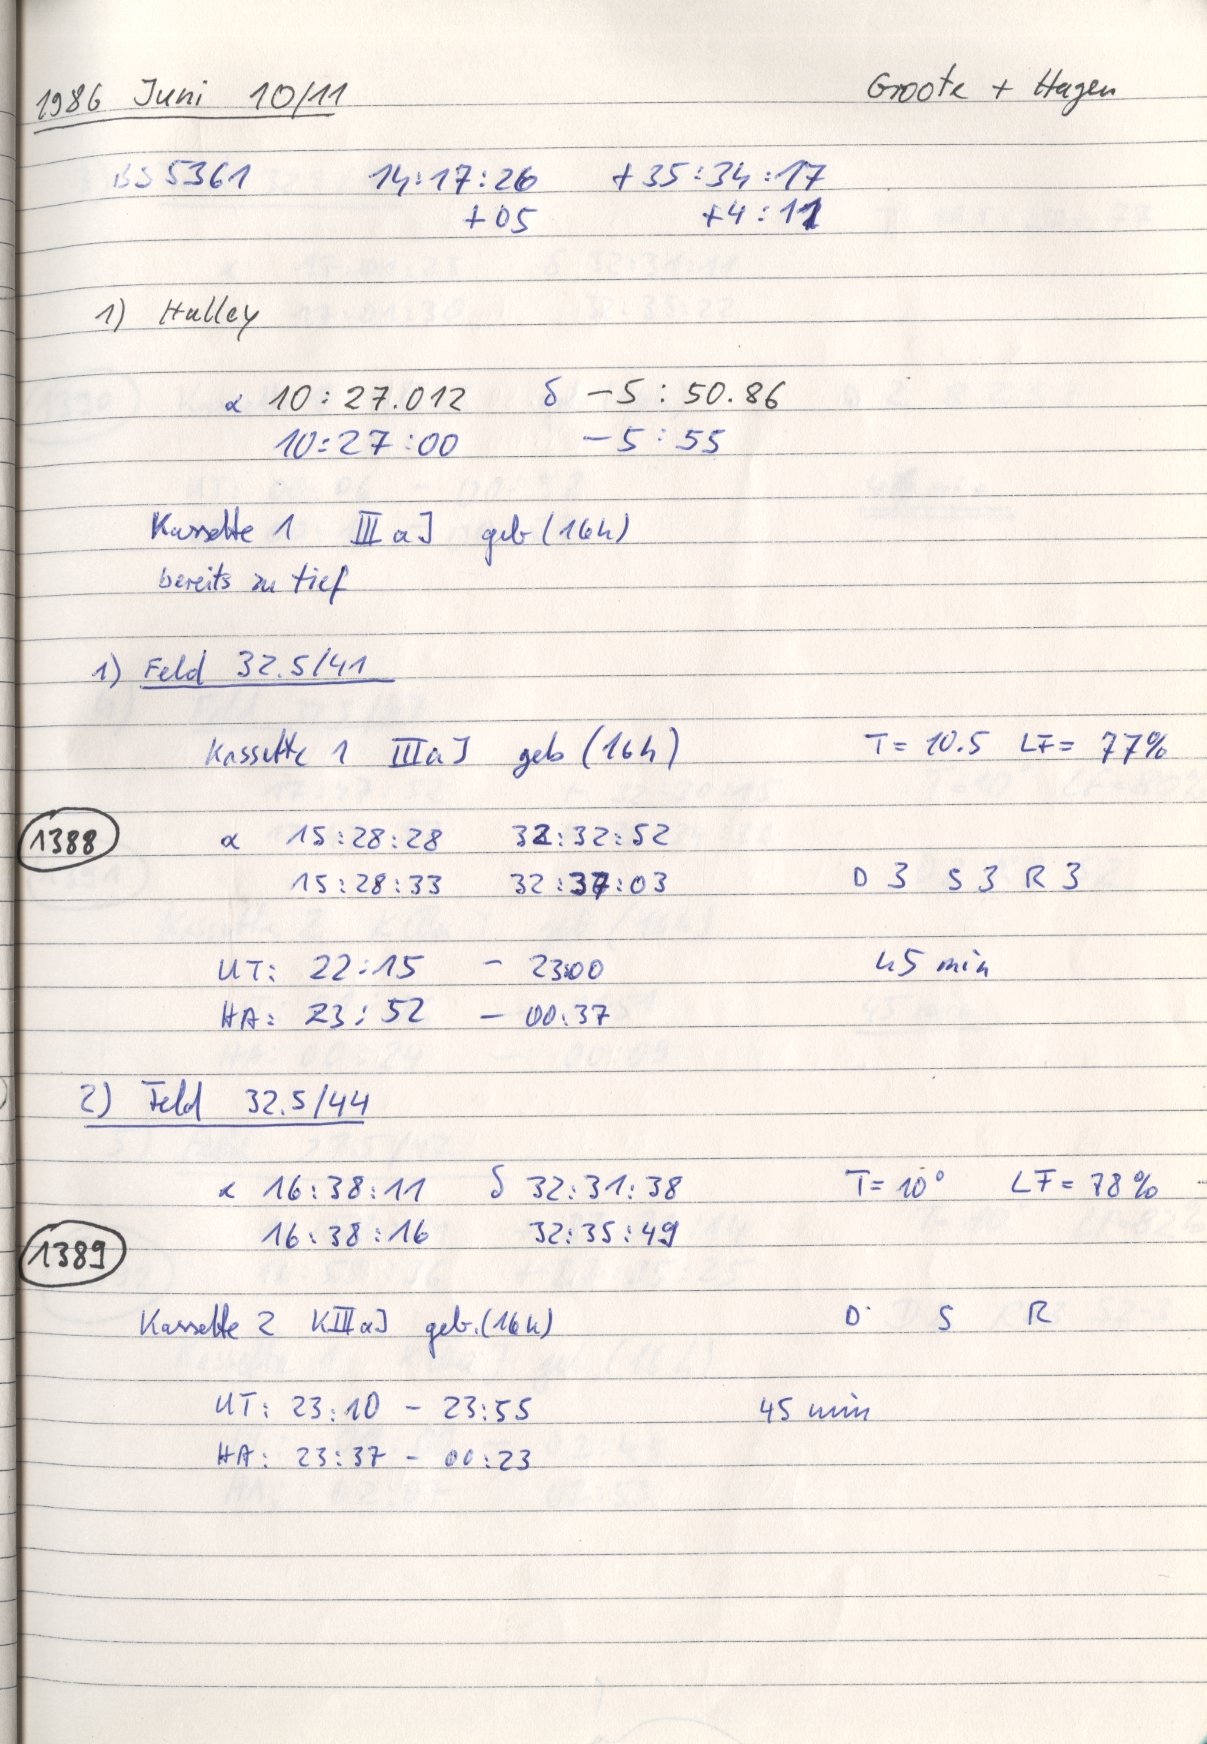 1986 Juni 10/11 Groote + Hagen
BS 5361 14:17:26 +35:34:17
+05 +4:11
1) Halley
α 10:27.012 δ -5:50.86
10:27:00 -5:55
Kassette 1 IIIaJ geb (16h)
bereits zu tief
1) Feld 32.5/41
Kassette 1 IIIaJ geb (16h) T= 10.5 LF= 77%
1388 α 15:28:28 32:32:52
15:28:33 32:37:03 D 3 S 3 R 3
UT: 22:15 - 23:00 45 min
HA: 23:52 - 00:37
2) Feld 32.5/44
α 16:38:11 δ 32:31:38 T= 10° LF= 78%
16:38:16 32:35:49
1389
Kassette 2 KIIIaJ geb.(16h) D S R
UT: 23:10 - 23:55 45 min
HA: 23:37 - 00:23